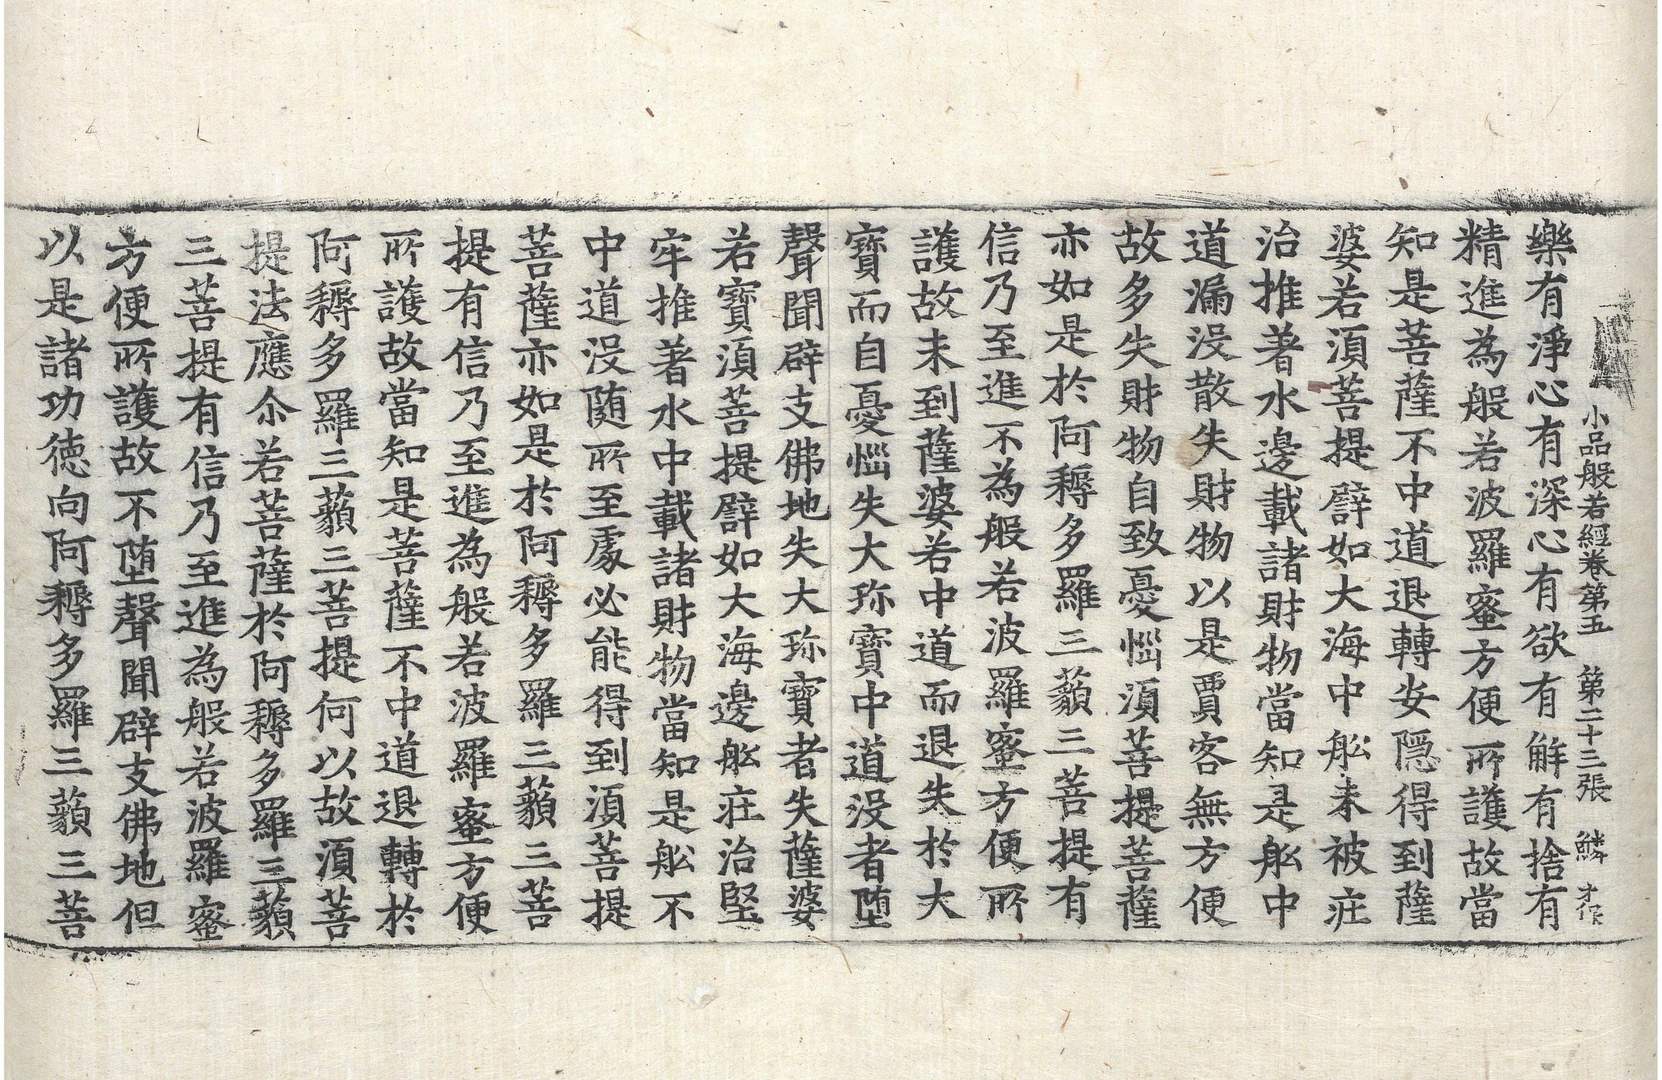 小品般若經卷第五　第二十三張　鱗　才作
樂有淨心有深心有欲有解有捨有
精進為般若波羅蜜方便所護故當
知是菩薩不中道退轉安隱得到薩
婆若須菩提譬如大海中舩未被莊
治推著水邊載諸財物當知是舩中
道漏没散失財物以是賈客無方便
故多失財物自致憂惱須菩提菩薩
亦如是於阿耨多羅三藐三菩提有
信乃至進不為般若波羅蜜方便所
護故未到薩婆若中道而退失於大
寶而自憂惱失大珎寶中道没者墮
聲聞辟支佛地失大珎寶者失薩婆
若寶須菩提譬如大海邊舩莊治堅
牢推著水中載諸財物當知是舩不
中道没随所至處必能得到須菩提
菩薩亦如是於阿耨多羅三藐三菩
提有信乃至進為般若波羅蜜方便
所護故當知是菩薩不中道退轉於
阿耨多羅三藐三菩提何以故須菩
提法應尒若菩薩於阿耨多羅三藐
三菩提有信乃至進為般若波羅蜜
方便所護故不墮聲聞辟支佛地但
以是諸功德向阿耨多羅三藐三菩